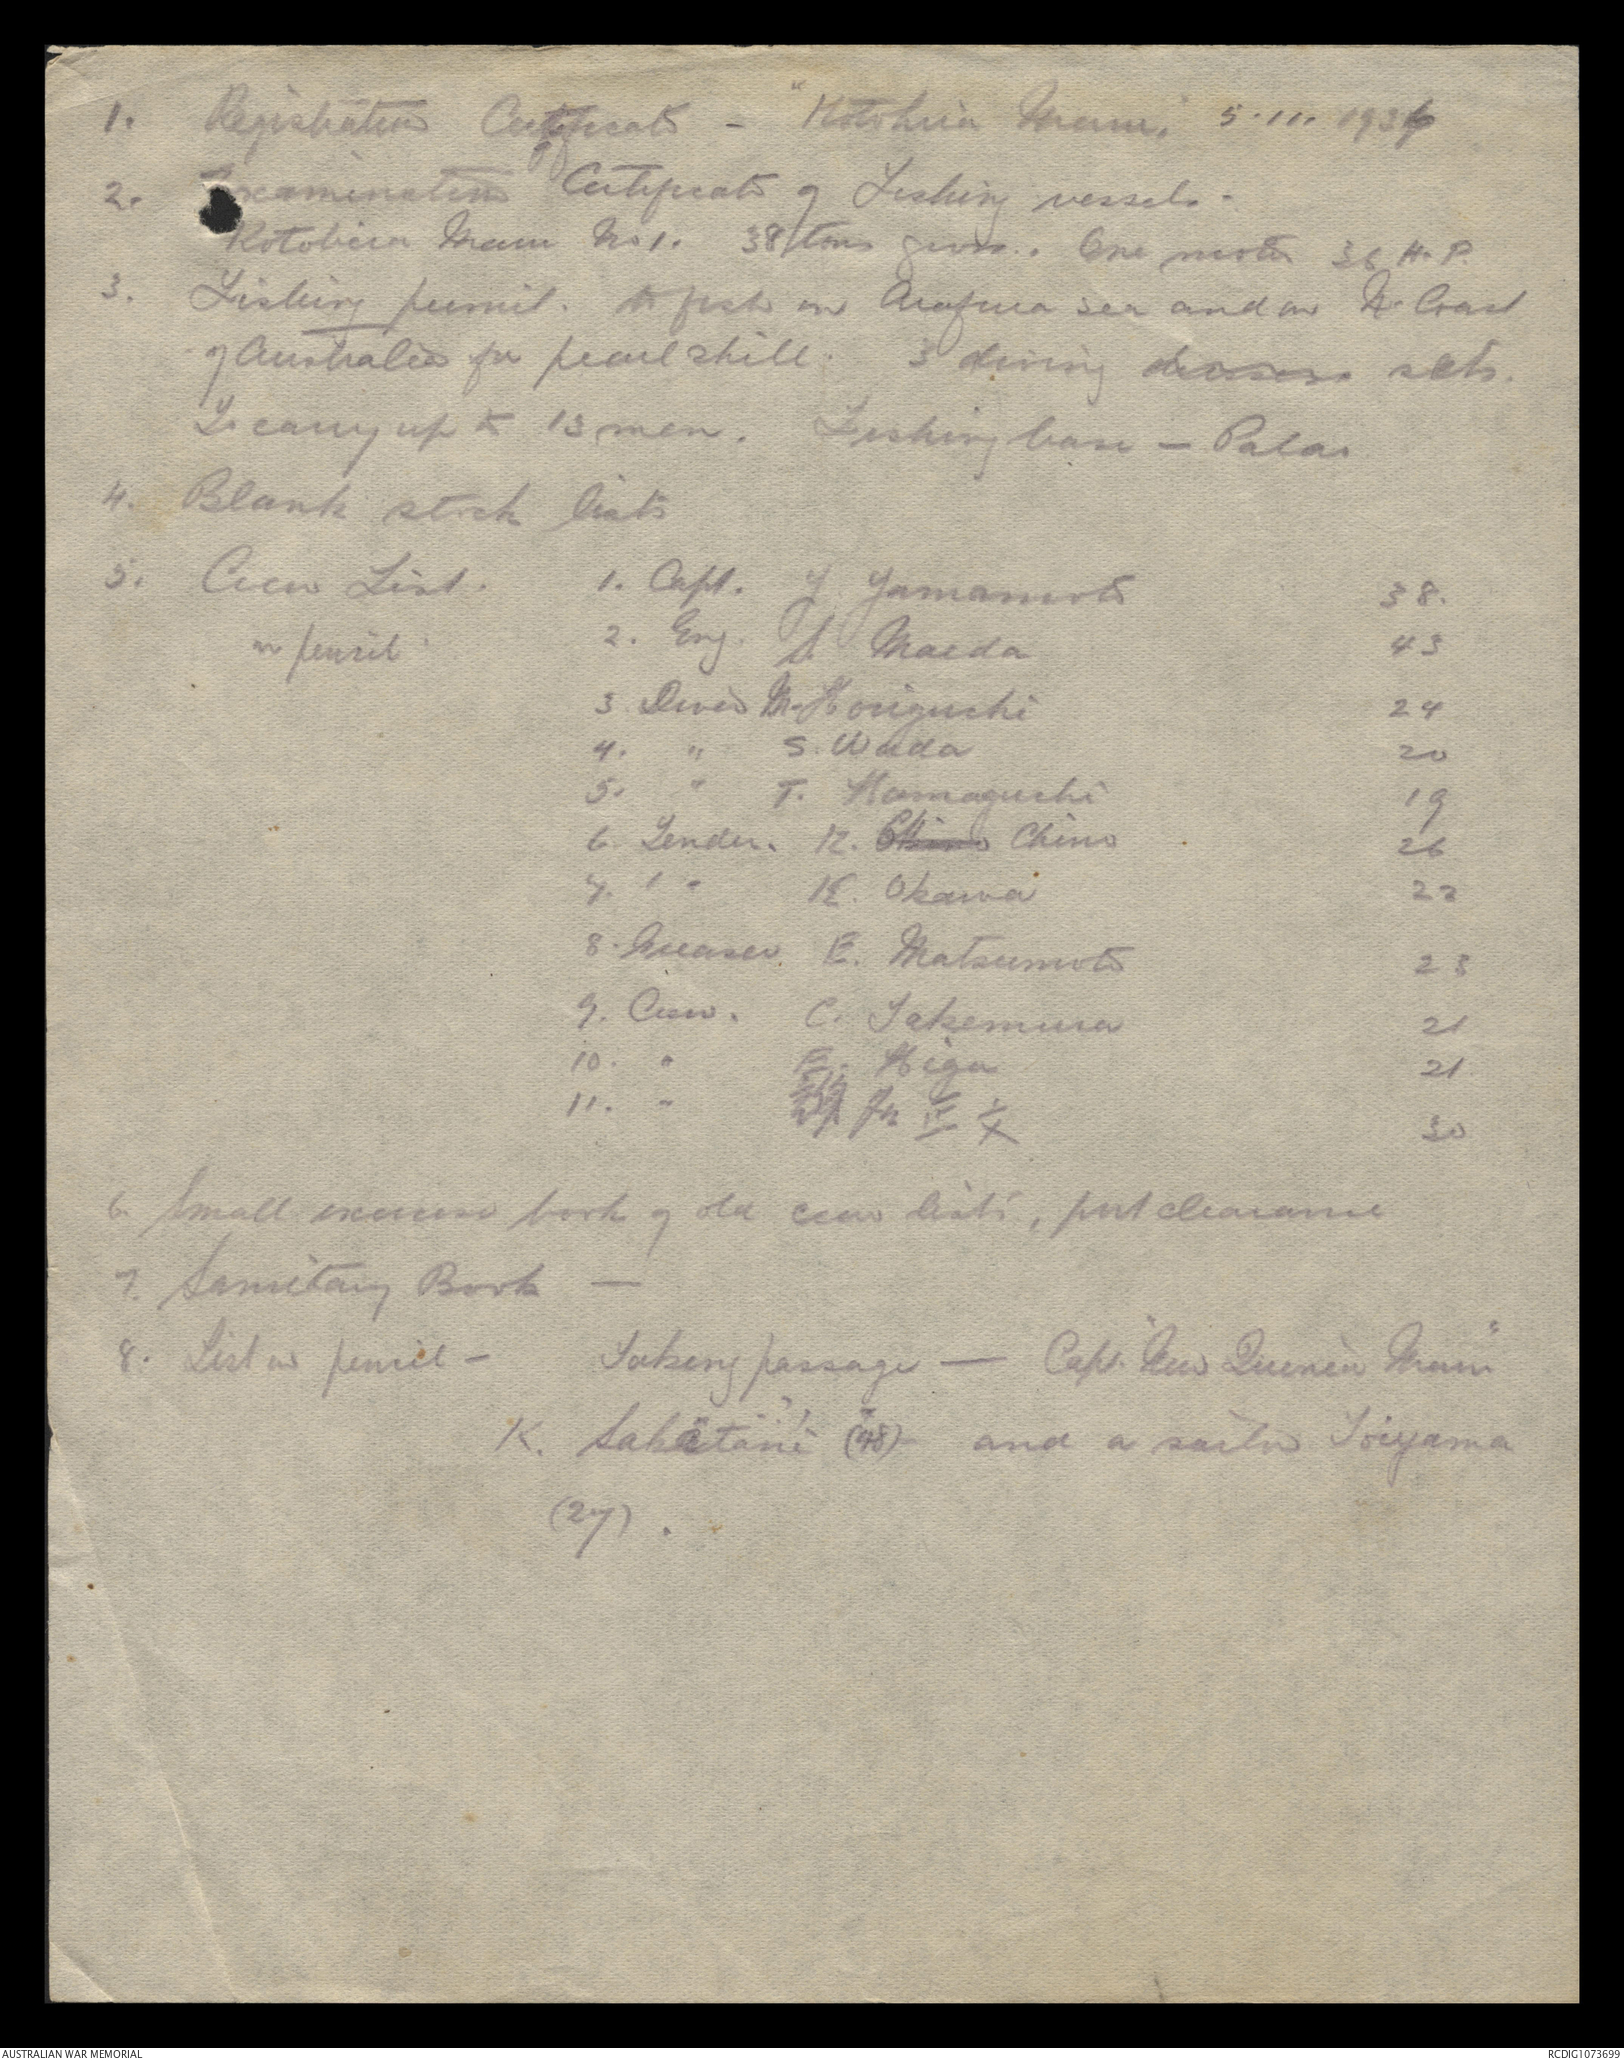 1. Registration Certificate - "Kotohira Maru," 5.111.1936
2. Examination Certificate of Fishing vessels.
Kotohira Maru No 1. 38 tons gross. One motor 36 H.P.
3. Fishing permit. to fish in Arafura sea and on N. Coast
of Australia for pearl shell. 3 diving dresses sets.
To carry up to 13 men. Fishing base - Palao
4. Blank stock lists
5. Crew List. 1. Capt. Y. Yamamoto 38.
in pencil 2. Eng. S. Maeda 43
3. Diver M. Horiguchi 24
4. " S. Wada 20
5. " T. Hamaguchi 19
6. Tender. K. Chino 26
7. " K. Okawa 22
8. Greaser E. Matsumoto 23
9. Crew. C. Takemura 21
10. " E. Higa 21
11. " 30
6. Small exercise book of old crew lists, port clearance
7. Sanitary Book -
8. List in pencil - Taking passage - Capt. "New Guinea Maru"
K. Sakatani (48) and a sailor Toiyama
(27).
AUSTRALIAN WAR MEMORIAL
RCDIG1073699